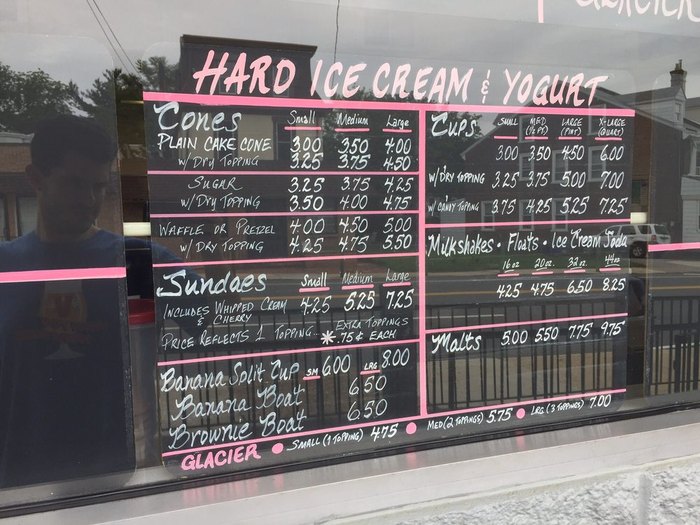 GLACIER
HARD ICE CREAM & YOGURT
Cones Small Medium Large
PLAIN CAKE CONE 3.00 3.50 4.00
w/ DRY TOPPING 3.25 3.75 4.50
SUGAR 3.25 3.75 4.25
w/ DRY TOPPING 3.50 4.00 4.75
WAFFLE OR PRETZEL 4.00 4.50 5.00
w/ DRY TOPPING 4.25 4.75 5.50
Sundaes Small Medium Large
INCLUDES WHIPPED CREAM & CHERRY 4.25 5.25 7.25
PRICE REFLECTS 1 TOPPING. * EXTRA TOPPINGS .75¢ EACH
Banana Split Cup SM 6.00 LRG 8.00
Banana Boat 6.50
Brownie Boat 6.50
Cups SMALL MED (½ PT) LARGE (PINT) X-LARGE (QUART)
3.00 3.50 4.50 6.00
w/ DRY TOPPING 3.25 3.75 5.00 7.00
w/ CANDY TOPPING 3.75 4.25 5.25 7.25
Milkshakes • Floats • Ice Cream Soda
16 oz 20 oz. 32 oz. 44 oz
4.25 4.75 6.50 8.25
Malts 5.00 5.50 7.75 9.75
GLACIER • SMALL (1 TOPPING) 4.75 • MED (2 TOPPINGS) 5.75 • LRG (3 TOPPINGS) 7.00